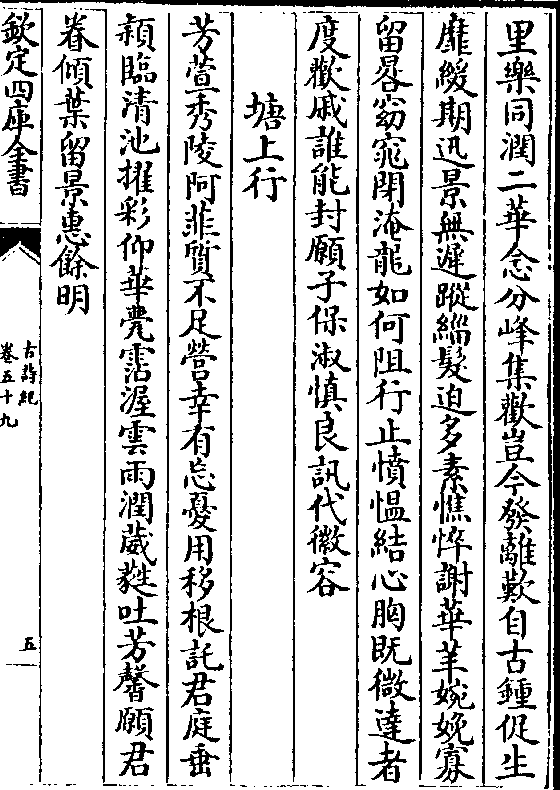 里樂同潤二華念分峰集歡豈今發離歎自古鍾促生
靡緩期迅景無遲蹤緇髮迫多素憔悴謝華䒠婉娩寡
留晷窈窕閉淹龍如何阻行止憤愠結心胸既微達者
度歡戚誰能封願子保淑慎良訊代徽容
塘上行
芳萱秀陵阿菲質不足營幸有忘憂用移根託君庭垂
頴臨清池擢彩仰華甍霑渥雲雨潤葳蕤吐芳馨願君
眷傾葉留景惠餘明
欽定四庫全書
古詩紀
卷五十九
五